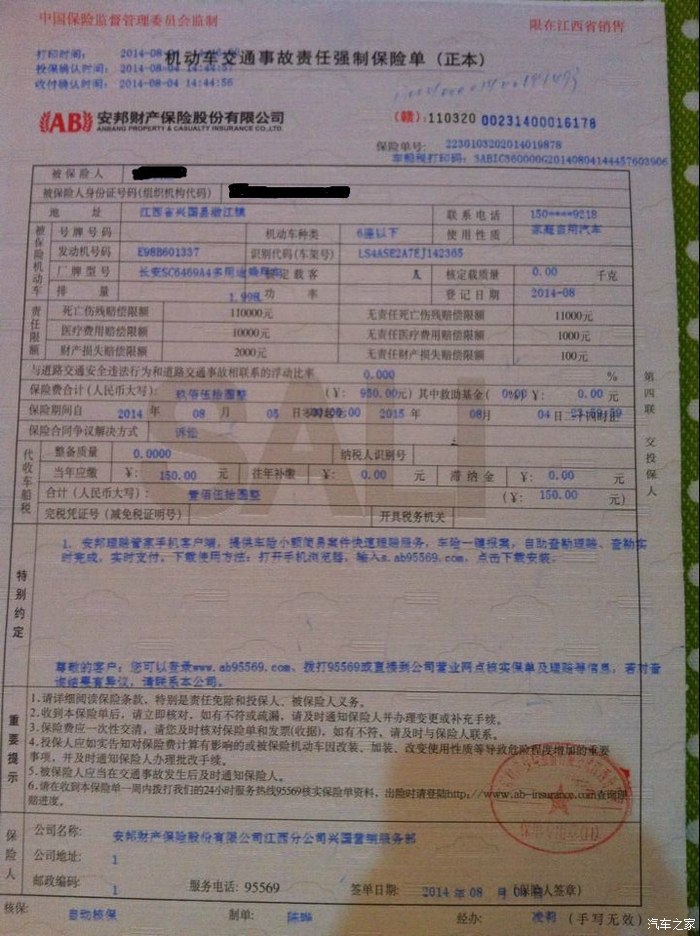 中国保险监督管理委员会监制
限在江西省销售
打印时间: 2014-08-0
投保确认时间: 2014-08-04 14:44:5
收付确认时间: 2014-08-04 14:44:56
机动车交通事故责任强制保险单 (正本)
AB 安邦财产保险股份有限公司
ANBANG PROPERTY & CASUALTY INSURANCE CO.,LTD.
(赣): 110320 00231400016178
保险单号: 2230103202014019878
车船税打印码: 3ABIC360000G20140804144457603906
被保险人
被保险人身份证号码(组织机构代码)
地 址 江西省兴国县潋江镇 联系电话 150****9218
被保险机动车
号牌号码 机动车种类 6座以下 使用性质 家庭自用汽车
发动机号码 E98B601337 识别代码(车架号) LS4ASE2A7EJ142365
厂牌型号 长安SC6469A4多用途乘用车 核定载客 人 核定载质量 0.00 千克
排 量 1.998L 功 率 登记日期 2014-08
责任限额
死亡伤残赔偿限额 110000元 无责任死亡伤残赔偿限额 11000元
医疗费用赔偿限额 10000元 无责任医疗费用赔偿限额 1000元
财产损失赔偿限额 2000元 无责任财产损失赔偿限额 100元
与道路交通安全违法行为和道路交通事故相联系的浮动比率 0.000 %
保险费合计(人民币大写): 玖佰伍拾圆整 (¥: 950.00元) 其中救助基金( 0%) ¥: 0.00 元
保险期间自 2014 年 08 月 05 日零时起至 2015 年 08月 04 日二十四时止
保险合同争议解决方式 诉讼
代收车船税
整备质量 0.0000 纳税人识别号
当年应缴 ¥: 150.00 元 往年补缴 ¥: 0.00 元 滞纳金 ¥: 0.00 元
合计(人民币大写): 壹佰伍拾圆整 (¥: 150.00 元)
完税凭证号(减免税证明号) 开具税务机关
特别约定
1. 安邦理赔管家手机客户端,提供车险小额简易案件快速理赔服务,车险一键报案,自助查勘理赔、查勘实
时完成,实时支付。下载使用方法:打开手机浏览器,输入s.ab95569.com,点击下载安装.
尊敬的客户:您可以登录www.ab95569.com、拨打95569或直接到公司营业网点核实保单及理赔等信息,若对查
询结果有异议,请联系本公司。
重要提示
1.请详细阅读保险条款,特别是责任免除和投保人、被保险人义务。
2.收到本保险单后,请立即核对,如有不符或疏漏,请及时通知保险人并办理变更或补充手续。
3.保险费应一次性交清,请您及时核对保险单和发票(收据),如有不符,请及时与保险人联系。
4.投保人应如实告知对保险费计算有影响的或被保险机动车因改装、加装、改变使用性质等导致危险程度增加的重要
事项,并及时通知保险人办理批改手续。
5.被保险人应当在交通事故发生后及时通知保险人。
6.请在收到本保险单一周内拨打我们的24小时服务热线95569核实保险单资料、出险时请登陆http://www.ab-insurance.com查询理
赔进度。
保险人
公司名称: 安邦财产保险股份有限公司江西分公司兴国营销服务部
公司地址: 1
邮政编码: 1 服务电话: 95569 签单日期: 2014 年 08 月 (保险人签章)
核保: 自动核保 制单: 经办: (手写无效)
第四联 交投保人
SALI
汽车之家